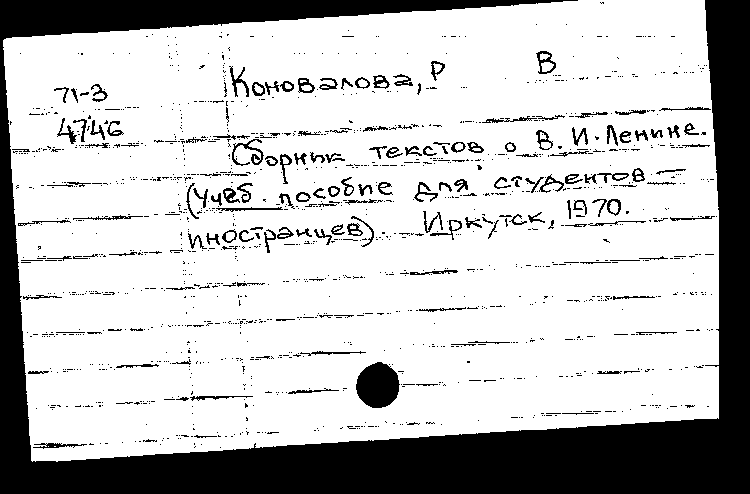 71-3
4746
Коновалова, Р В
Сборник текстов о В. И. Ленине.
(Учеб. пособие для студентов —
иностранцев). Иркутск, 1970.